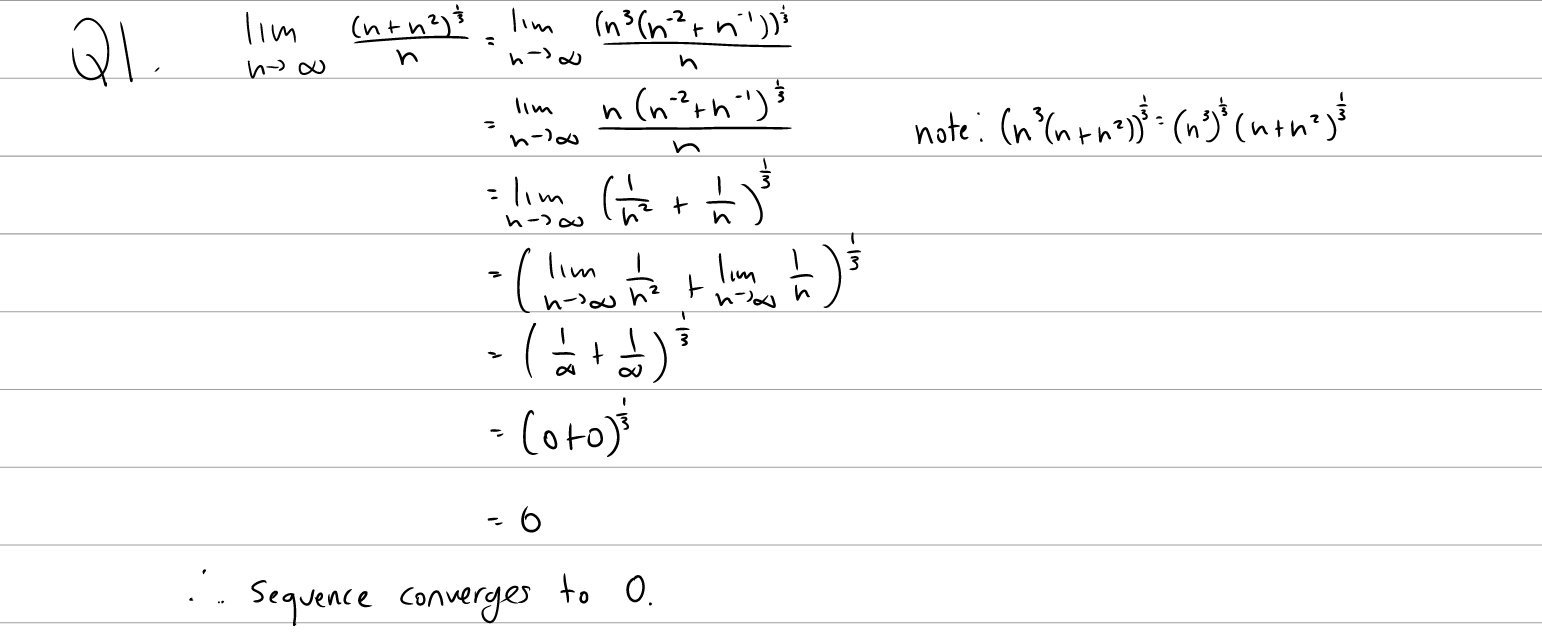 Q1. lim n→∞ (n+n²)^(1/3) / n = lim n→∞ (n³(n⁻² + n⁻¹))^(1/3) / n
= lim n→∞ n(n⁻²+n⁻¹)^(1/3) / n note: (n³(n+n²))^(1/3) = (n³)^(1/3) (n+n²)^(1/3)
= lim n→∞ (1/n² + 1/n)^(1/3)
= (lim n→∞ 1/n² + lim n→∞ 1/n)^(1/3)
= (1/∞ + 1/∞)^(1/3)
= (0+0)^(1/3)
= 0
∴ Sequence converges to 0.